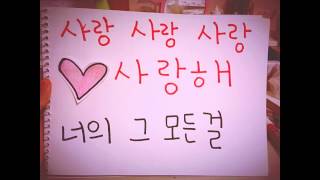 사랑 사랑 사랑
사랑해
너의 그 모든걸